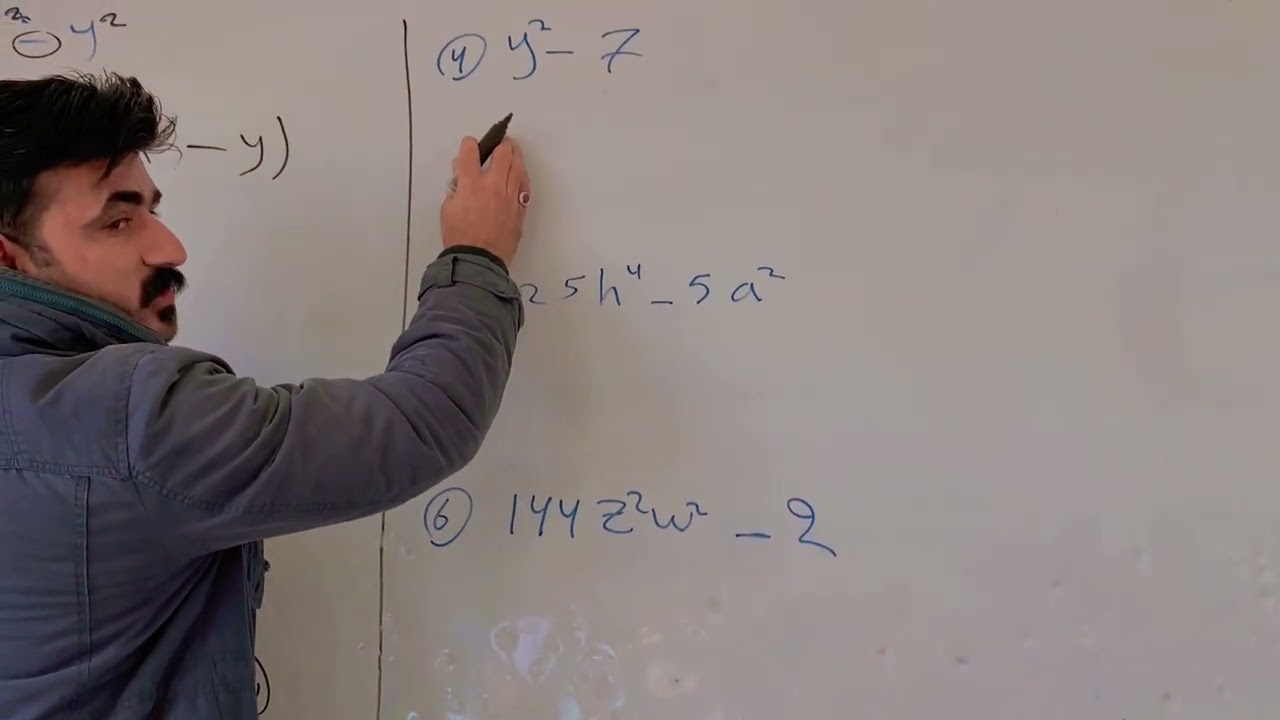 ² − y²
− y)
④ y² − 7
25h⁴ − 5a²
⑥ 144z²w² − 2